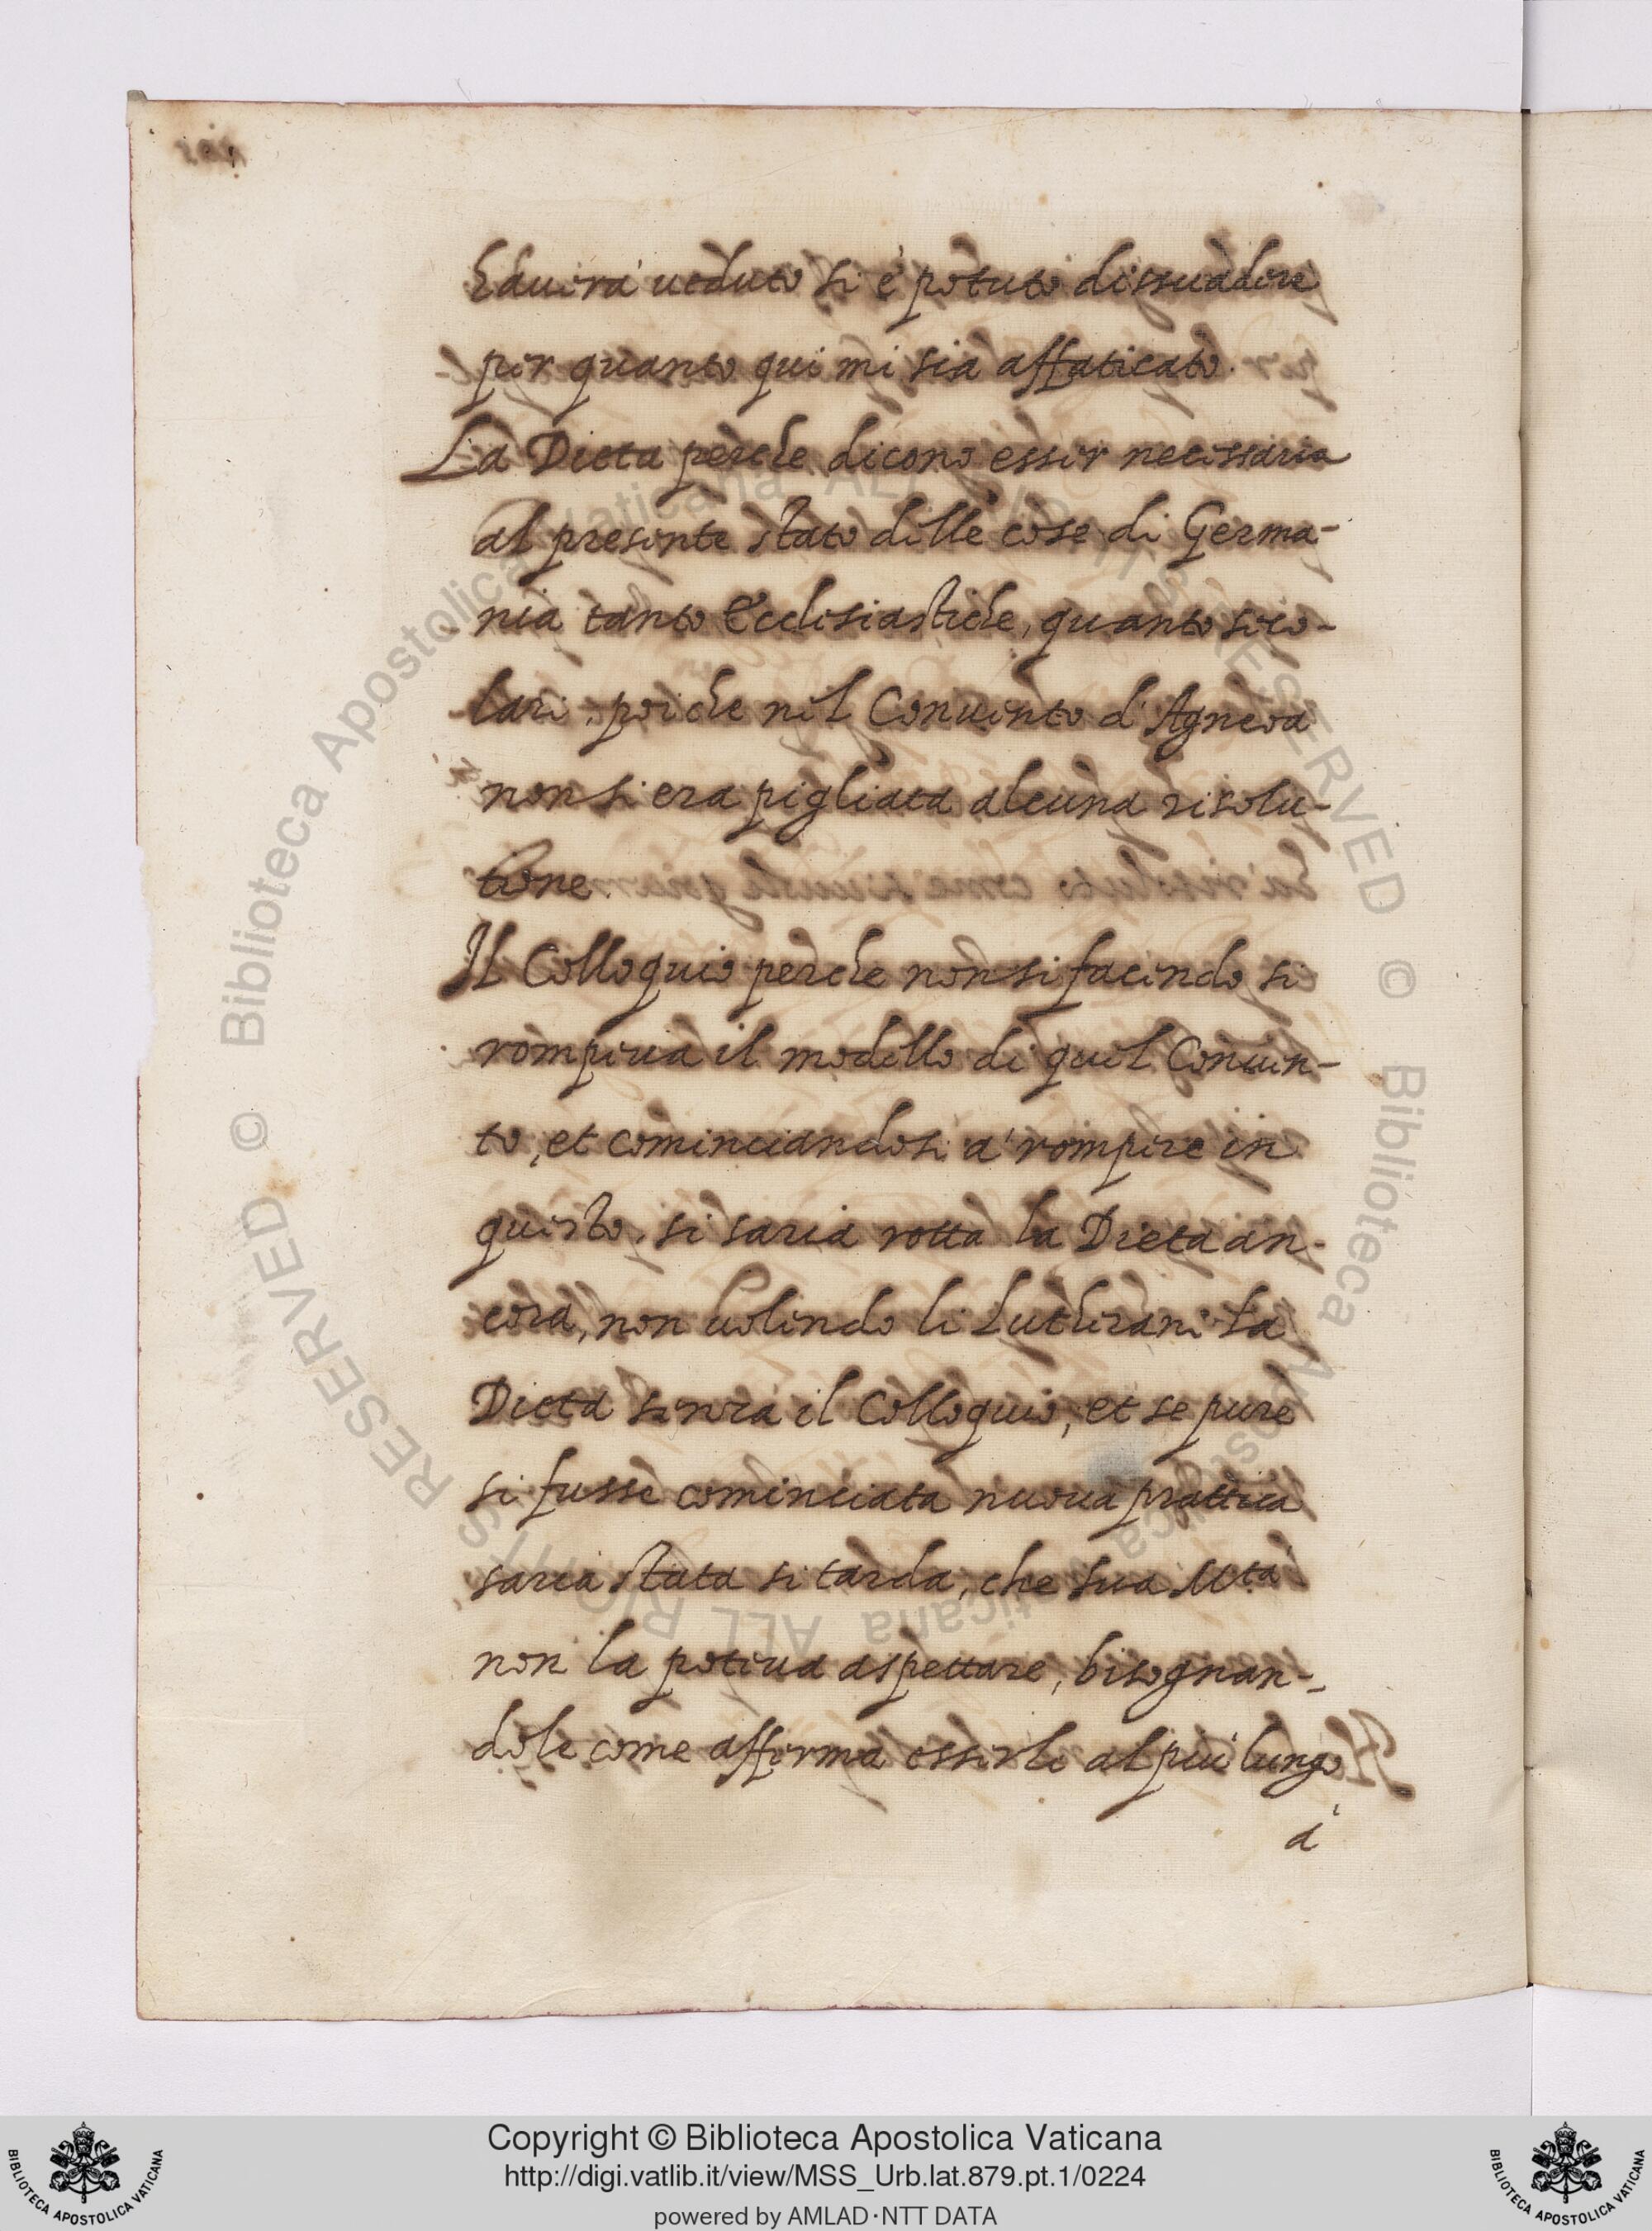 haverà ueduto si è potuto dissuadere
per quanto qui mi sia affaticato.
La Dieta perche dicono esser necessaria
al presente stato delle cose di Germa-
nia tanto Ecclesiastiche, quanto seco-
lari, poiche nel Conuento d'Agneoa
non si era pigliata alcuna risolu-
tione.
Il Colloquio perche non si facendo si
rompeua il modello di quel Conuen-
to, et cominciandosi à rompere in
questo, si saria rotta la Dieta an-
cora, non uolendo li Lutherani la
Dieta senza il Colloquio, et se pure
si fusse cominciata nuoua prattica
saria stata si tarda, che sua M.tà
non la poteua aspettare, bisognan-
dole come afferma esserle al più lungo
à
© Biblioteca Apostolica Vaticana ALL RIGHTS RESERVED © Biblioteca Apostolica Vaticana ALL RIGHTS RESERVED
Copyright © Biblioteca Apostolica Vaticana
http://digi.vatlib.it/view/MSS_Urb.lat.879.pt.1/0224
powered by AMLAD·NTT DATA
BIBLIOTECA APOSTOLICA VATICANA
BIBLIOTECA APOSTOLICA VATICANA